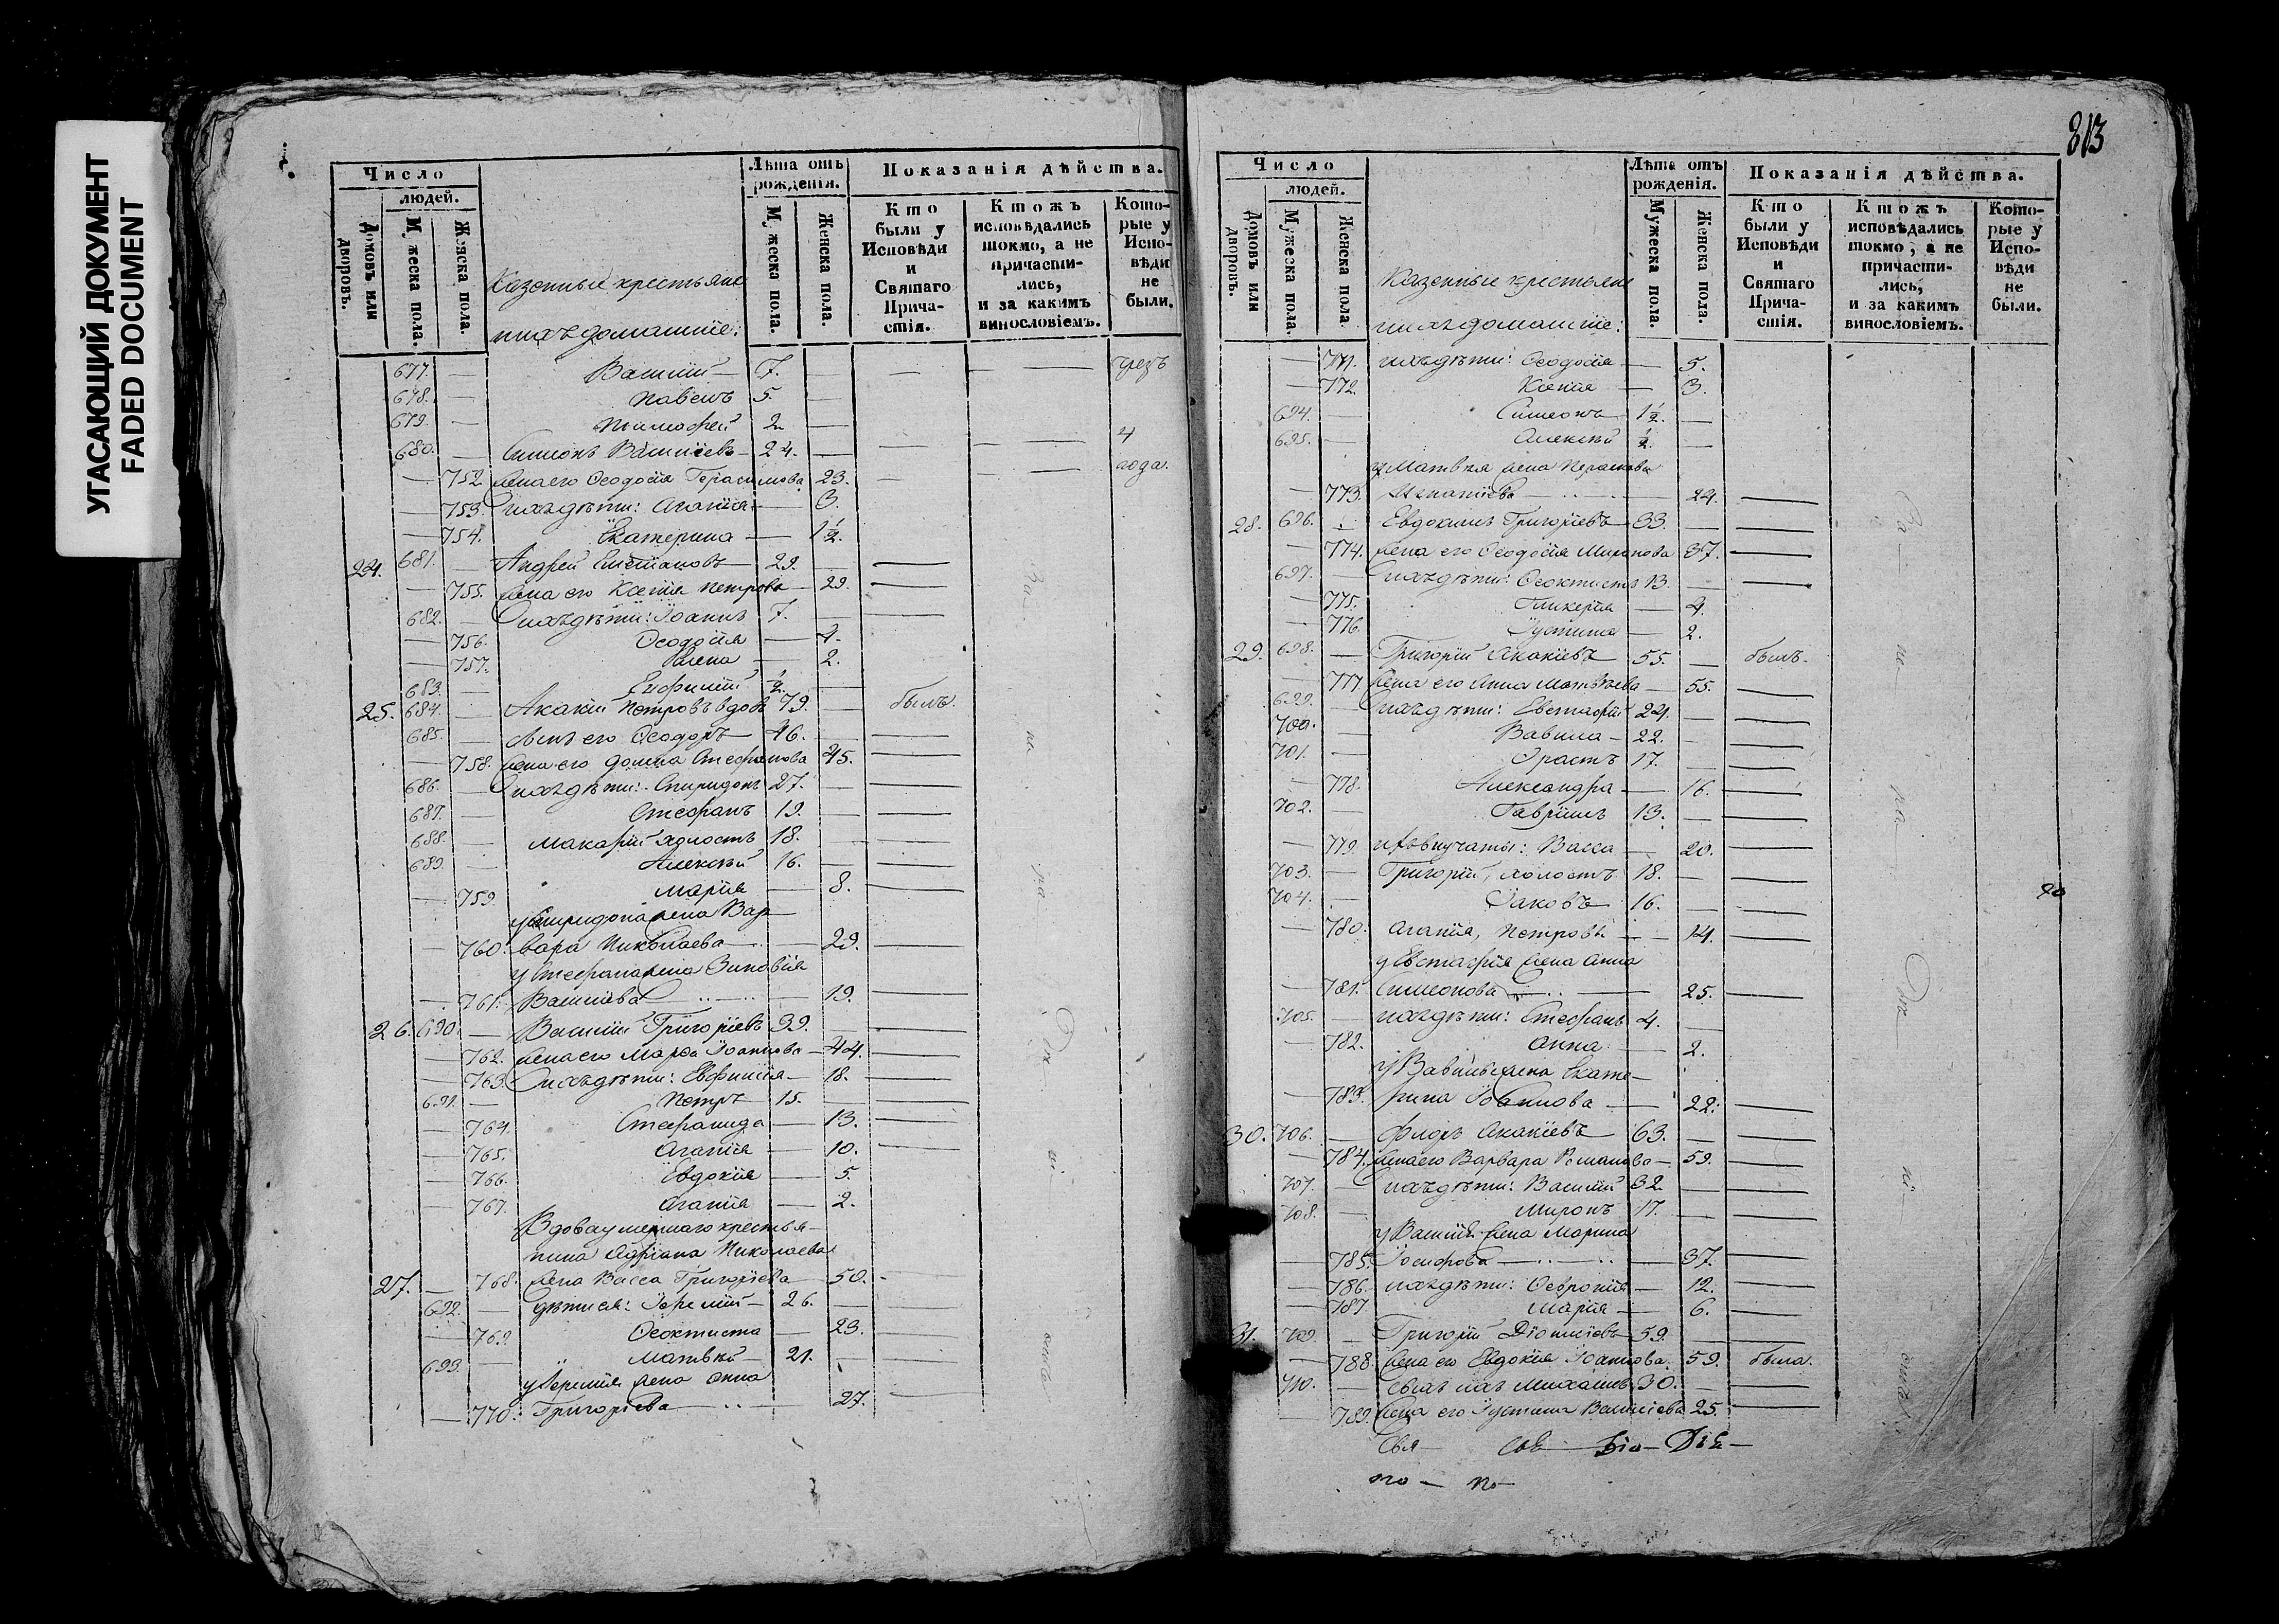 УГАСАЮЩИЙ ДОКУМЕНТ
FADED DOCUMENT
Число
людей.
Домовъ или дворовъ.
Мужеска пола.
Женска пола.
Казенные крестьяне
и ихъ домашніе:
Лѣта отъ рожденія.
Мужеска пола.
Женска пола.
Показанія дѣйства.
Кто были у Исповѣди и Святаго Причастія.
Ктожъ исповѣдались токмо, а не причастились, и за какимъ винословіемъ.
Которые у Исповѣди не были.
677. — Василій — 7. — — — чрезъ
678. — Павелъ 5. —
679. — Тимофей 2 —
680. — Симеонъ Василіевъ — 24. — — — 4
— 752 жена его Ѳеодосія Герасимова 23. — — года.
— 753. Ихъ дѣти: Агапія — 3.
— 754. Екатерина — 1½.
24. 681. — Андрей — 29. — —
— 755. жена его Ксенія Петрова — 29. —
682. — Ихъ дѣти: Іоаннъ 7. — —
— 756. Ѳеодосія — 4.
— 757. — 2.
683. — Евфимій ½. —
25. 684. — Акакій Петровъ вдовъ 79. — былъ.
685. — сынъ его Ѳеодоръ — 46. — —
— 758. жена его Домна Стефанова 45. —
686. — Ихъ дѣти: Спиридонъ 27. — —
687. — Стефанъ 19. — —
688. — Макарій холостъ 18. —
689. — Алексѣй 16. — —
— 759. Марія — 8. —
у Спиридона жена Вар—
— 760. вара Николаева — — 29. —
у Стефана жена Зиновія
— 761. Василіева — — 19. —
26. 690. — Василій Григоріевъ 39. — —
— 762. жена его Марѳа Іоаннова — 44. —
— 763. Ихъ дѣти: Евфимія — 18. —
691. — Петръ — 15. — —
— 764. Стефанида — 13. —
— 765. Агапія — 10. —
— 766. Евдокія — 5.
— 767. Агапія — 2.
Вдова умершаго крестья—
нина Адріана Николаева
27. — 768. жена Васса Григоріева — 50. —
692. — дѣти ея: Іеремій — 26. — —
— 769. Ѳеоктиста — 23. —
693. — Матвѣй — 21. — —
у Іереміи жена Анна
— 770. Григоріева — — 27. —
За
не
ра
Дѣ
ні
емъ
813
Число
людей.
Домовъ или дворовъ.
Мужеска пола.
Женска пола.
Казенные крестьяне
и ихъ домашніе:
Лѣта отъ рожденія.
Мужеска пола.
Женска пола.
Показанія дѣйства.
Кто были у Исповѣди и Святаго Причастія.
Ктожъ исповѣдались токмо, а не причастились, и за какимъ винословіемъ.
Которые у Исповѣди не были.
— 771. ихъ дѣти: Ѳеодосія — 5.
— 772. Ксенія — 3.
694. — Симеонъ — 1½. —
695. — Алексѣй ½. —
у Матвѣя жена Параскева
— 773. Игнатіева — — 24. —
28. 696. — Евдокимъ Григоріевъ — 33. — —
— 774. жена его Ѳеодосія Миронова 37. —
697. — Ихъ дѣти: Ѳеоктистъ 13. — —
— 775. Гликерія — 4.
— 776. Іустина — 2.
29. 698. — Григорій Акакіевъ 55. — былъ.
— 777. жена его Анна Матвѣева — 55. —
699. — Ихъ дѣти: Евстафій 24. — —
700. — Вавила — 22. — —
701. — Эрастъ 17. — —
— 778. Александра — 16. —
702. — Гавріилъ 13. — —
— 779. Васса — 20. —
703. — Григорій, холостъ 18. — —
704. — Іаковъ 16. — —
— 780. Агапія, Петровы — 14. —
у Евстафія жена Анна
— 781. Симеонова — — 25. —
705. — ихъ дѣти: Стефанъ 4. —
— 782. Анна — 2.
у Вавилы жена Екате—
— 783. рина Іоаннова — 22. —
30. 706. — Флоръ Акакіевъ 63. — —
— 784. жена его Варвара Романова — 59. —
707. — Ихъ дѣти: Василій 32 — —
708. — Миронъ 17. — —
у Василія жена Марина
— 785. Іосифова — — 37. —
— 786. ихъ дѣти: Ѳевронія — 12. —
— 787 Марія — 6. —
31. 709. — Григорій Діонисіевъ 59. — —
— 788. жена его Евдокія Іоаннова. 59. была.
710. — сынъ ихъ Михаилъ 30. — —
— 789. жена его Іустина Василіева 25. —
За
не
ра
Дѣ
ні
емъ